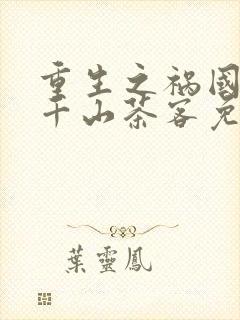 重生之祸國
千山茶客免
葉靈鳳